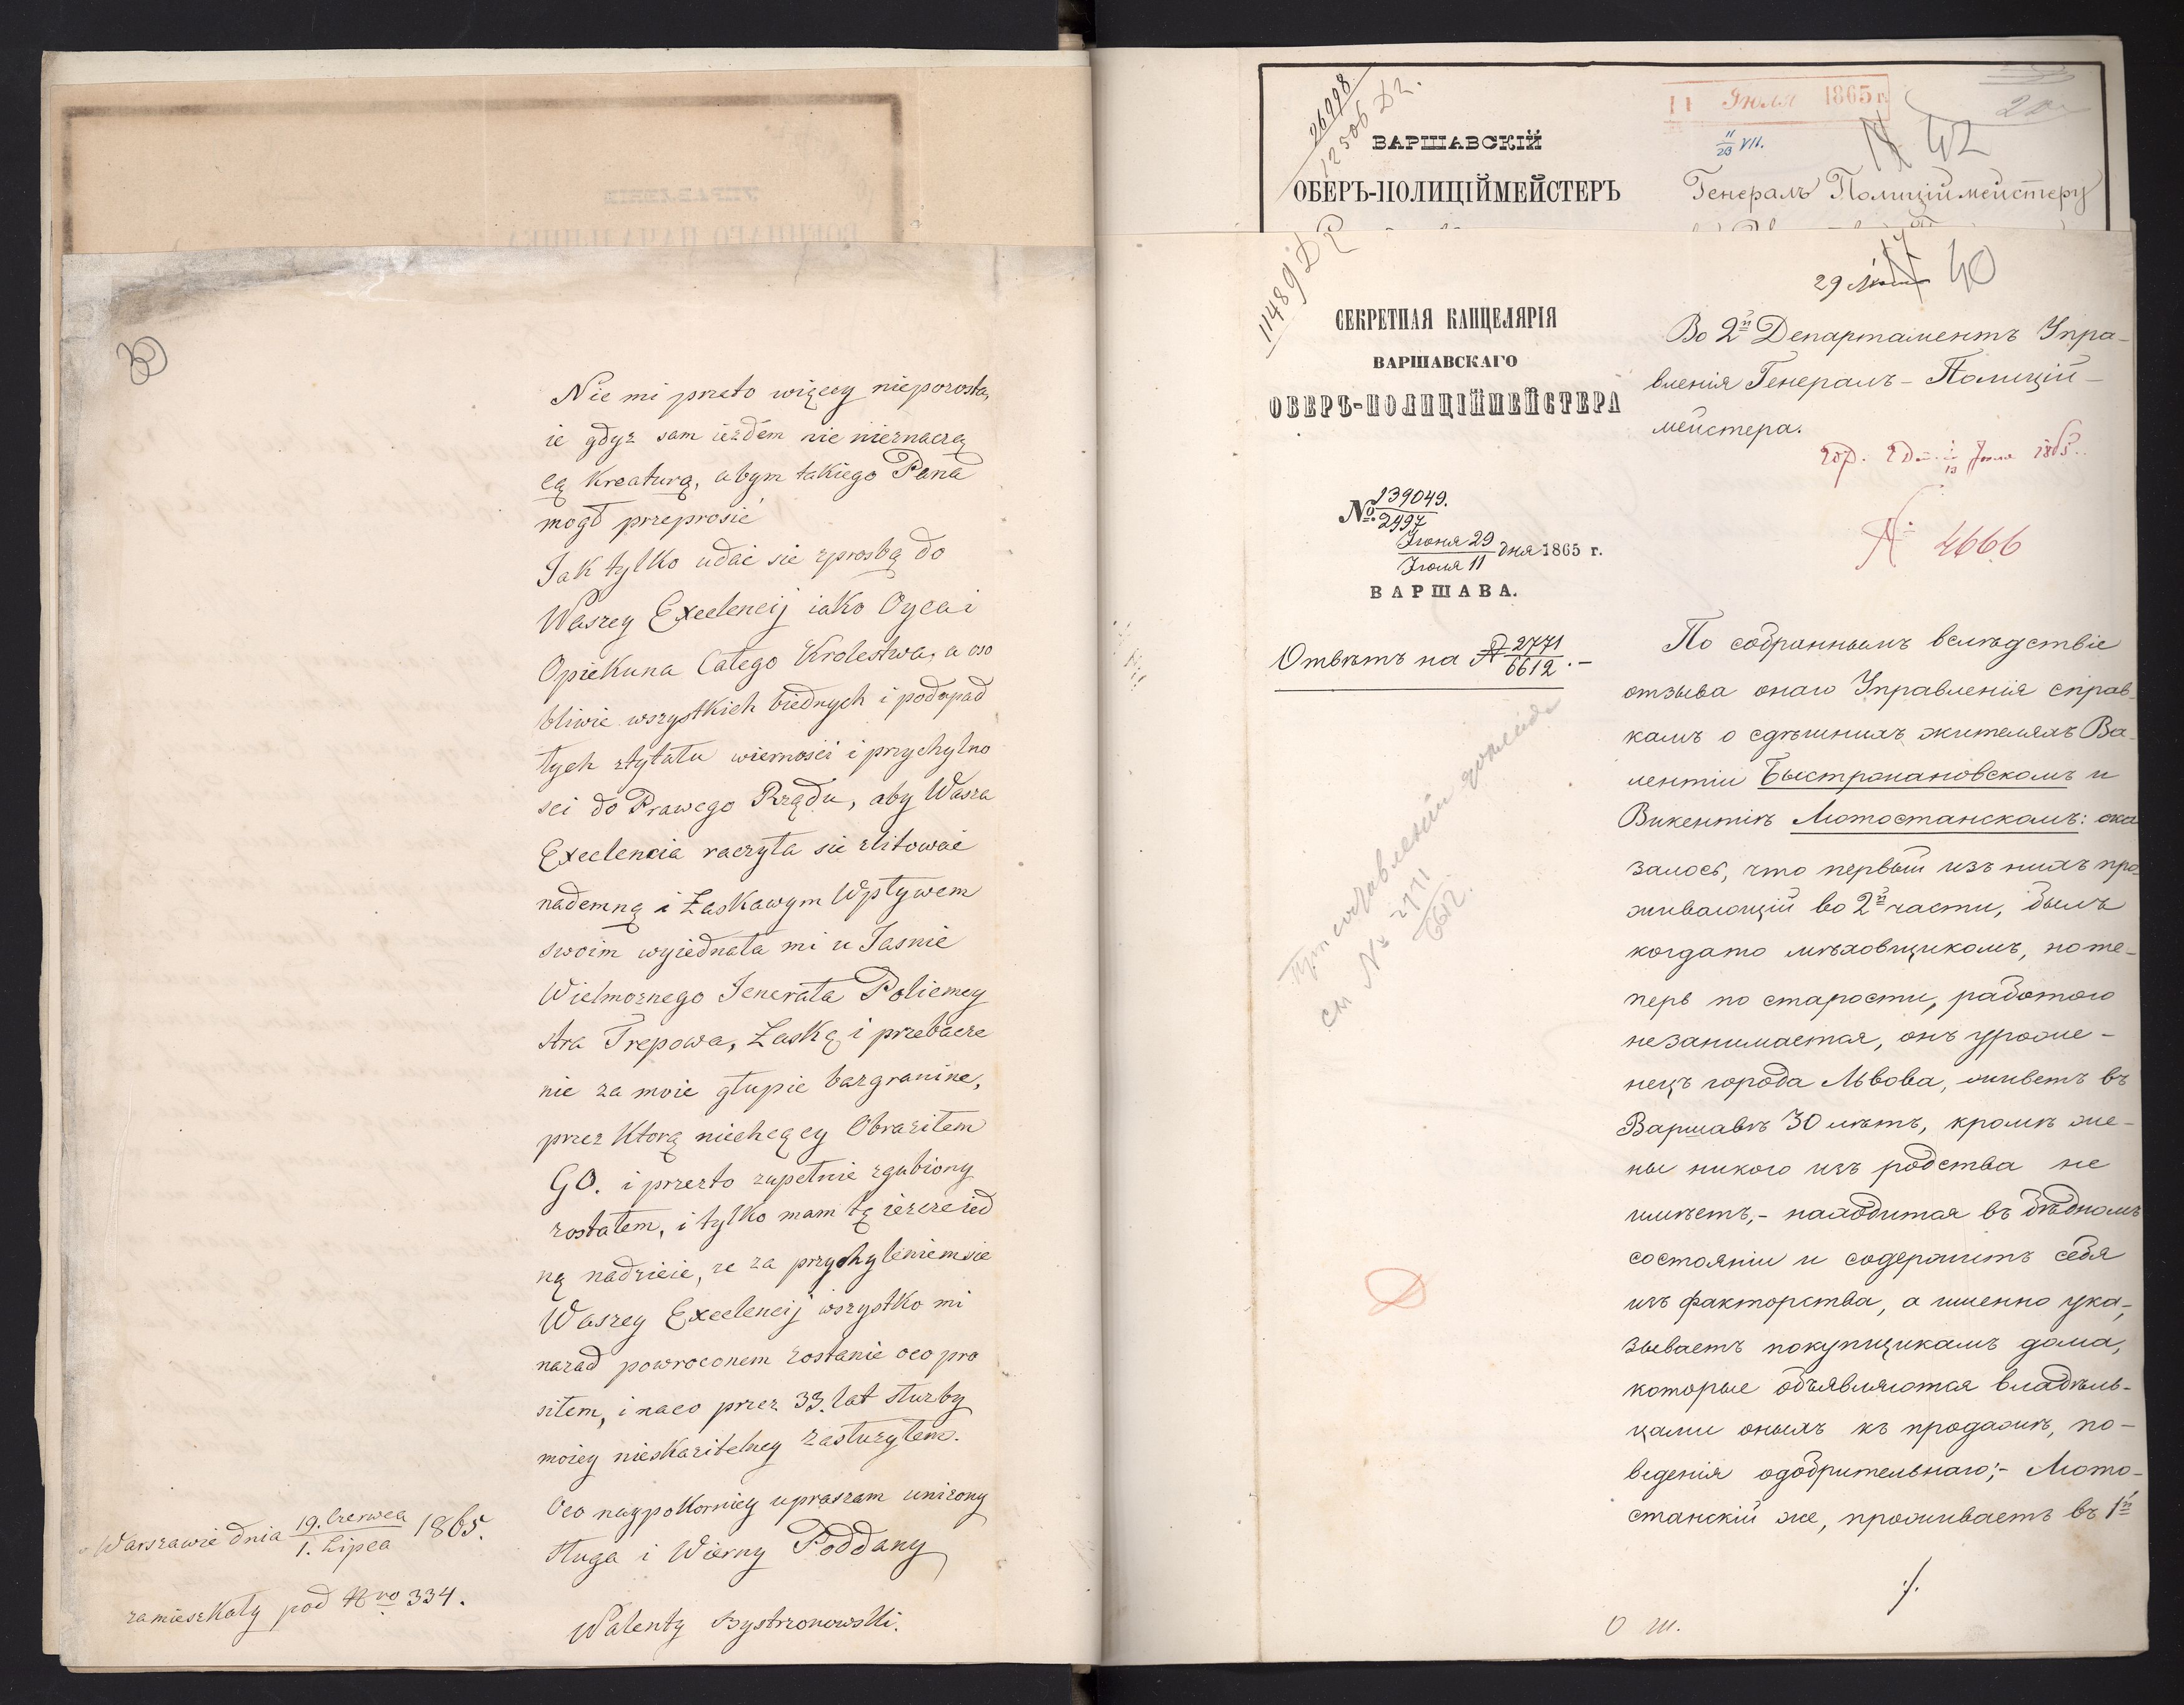 Nie mi przeto więcey niepozosta,
ie gdyz sam iezdem nie nieznaczą
cą Kreaturą, abym takiego Pana
mogł przeprosić
Jak tylko udać sie zprosbą do
Waszey Excelencij iako Oyca i
Opiekuna Całego Krolestwa, a oso
bliwie wszystkich biednych i podupad
łych ztytułu wiernosci i przychylno
sci do Prawego Rządu, aby Wasza
Excelencia raczyła sie zlitować
nademną i Łaskawym Wpływem
swoim wyiednała mi u Jasnie
Wielmoznego Jenerała Policmey
stra Trepowa, Łaskę i przebacze
nie za moie głupie bazgranine,
przez Ktorą niechcący Obraziłem
GO. i przezto zupełnie zgubiony
zostałem, i tylko mam tę ieszcze ied
ną nadzieie, ze za przychyleniem sie
Waszey Excelencij wszystko mi
nazad powroconem zostanie oco pro
siłem, i naco przez 33. lat słuzby
moiey nieskazitelney Zasłuzyłem.
Oco naypokorniey upraszam unizony
Sługa i Wierny Poddany
Walenty Bystrzonowski.
Warszawie dnia 19. Czerwca / 1. Lipca 1865.
zamieszkały pod Nro 334.
26998
12506 Д2.
ВАРШАВСКІЙ
ОБЕРЪ-ПОЛИЦІЙМЕЙСТЕРЪ
11 Іюля 1865 г.
11/23 VII.
42
Генералъ Полиційместеру
11489 Д2
СЕКРЕТНАЯ КАНЦЕЛЯРІЯ
ВАРШАВСКАГО
ОБЕРЪ-ПОЛИЦІЙМЕЙСТЕРА
№ 139049. / 2997
Іюня 29 / Іюля 11 дня 1865 г.
ВАРШАВА.
Отвѣтъ на № 2771 / 6612.-
При составленіи
см № 2771
6612.
29 40
Во 2й Департаментъ Упра-
вленія Генералъ-Полицій-
мейстера.
Іюля 1865.
№ 4666
По собраннымъ вслѣдствіе
отзыва онаго Управленія справ-
камъ о сдѣшнихъ жителяхъ Ва-
лентіи Быстрожановскомъ и
Викентіѣ Мотостанскомъ: ока
залось, что первый изъ нихъ про-
живающій во 2й части, былъ
когдато мѣховщикомъ, но те-
перь по старости, работою
незанимается, онъ уроже-
нецъ города Львова, живетъ въ
Варшавѣ 30 лѣтъ, кромѣ же-
ны никого изъ родства не
имѣетъ,- находится въ бѣдномъ
состояніи и содержитъ себя
изъ факторства, а именно ука-
зываетъ покупщикамъ дома,
которые объявляются владѣль-
цами оныхъ къ продажѣ, по-
веденія одобрительнаго;- Мото-
станскій же, проживаетъ въ 1й
·/.